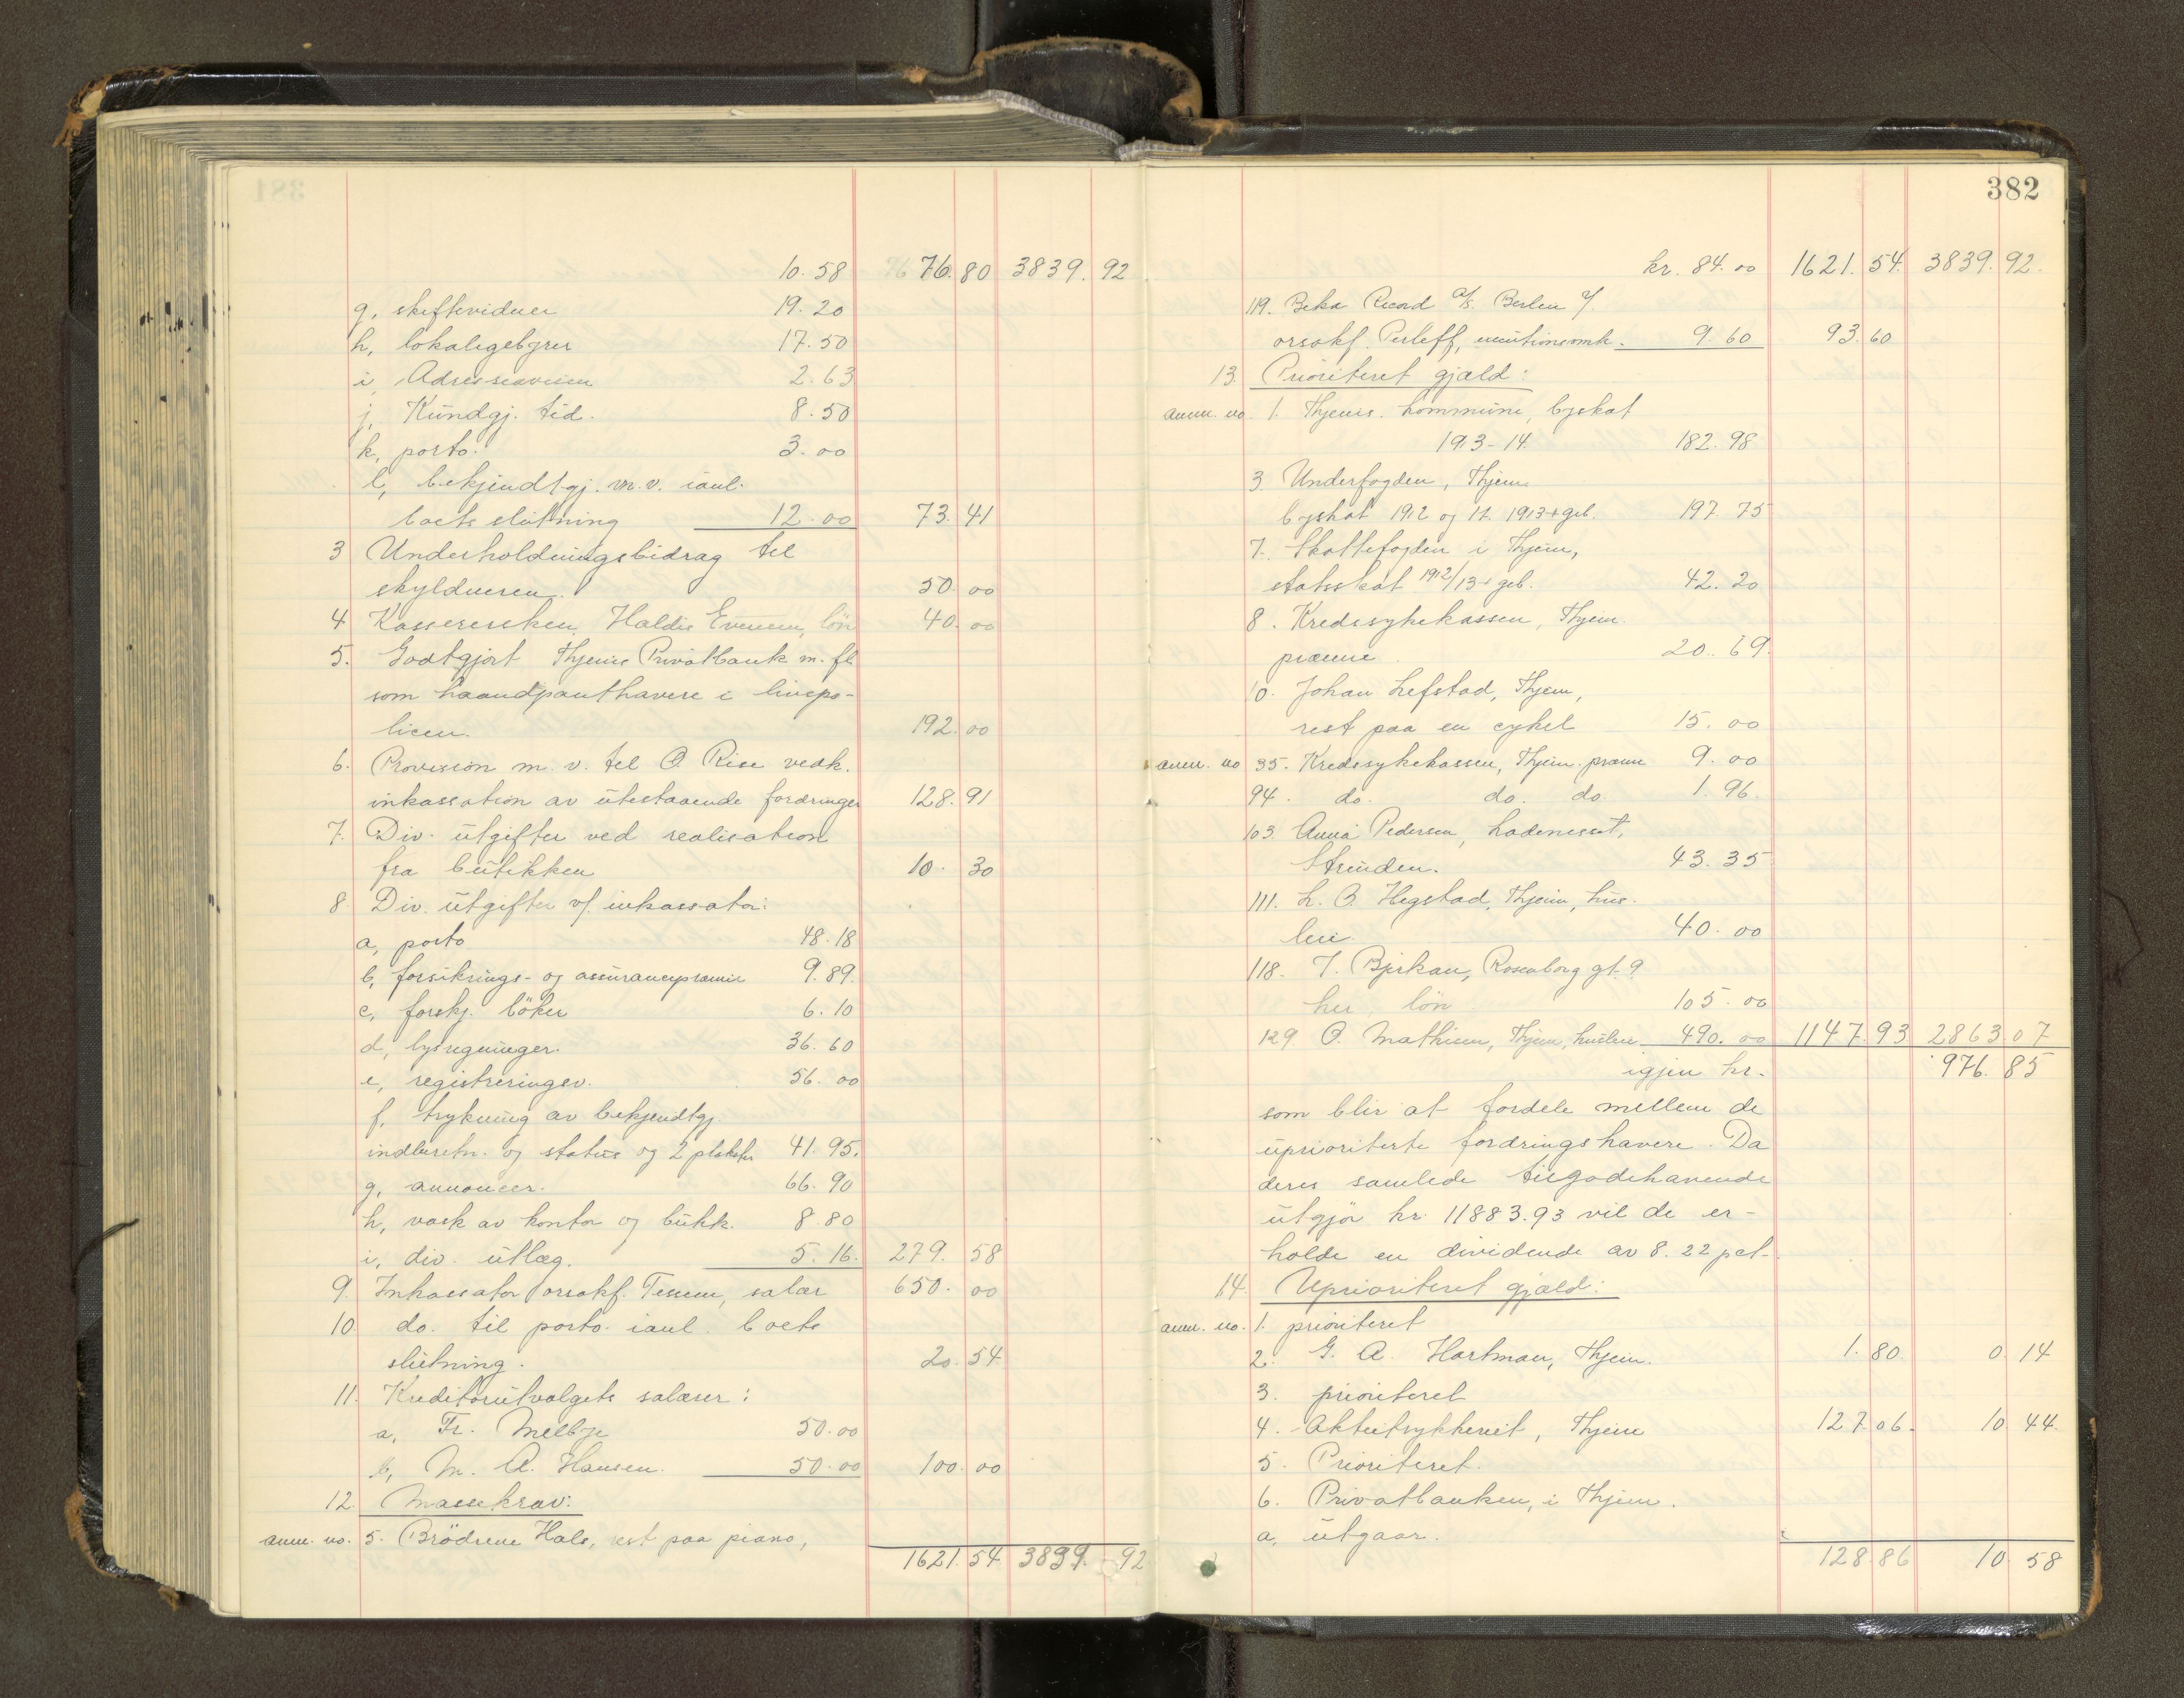 10.58 76.80 3839.92
g, skiftevidner 19.20
h, lokalegebyrer 17.50
i, Adresseavisen 2.63
j, Kundgj. tid. 8.50
k, porto 3.00
l, bekjendtgj. m.v. ianl.
boets slutning 12.00 73.41
3 Underholdningsbidrag til
skyldneren. 50.00
4 Kassersken Haldis Evensen, lön 40.00
5. Godtgjort Thjems Privatbank m. fl.
som haandpanthavere i livspo-
licen. 192.00
6. Provision m. v. til O. Rise vedk.
inkassation av utestaaende fordringer 128.91
7. Div. utgifter ved realisation
fra butikken 10.30
8. Div. utgifter v/ inkassator:
a, porto 48.18
b, forsikrings- og assurancepræmie 9.89
c, forskj. böker 6.10
d, lysregninger. 36.60
e, registreringsv. 56.00
f, trykning av bekjendtgj.
indberetn. og status og 2 plakater 41.95.
g, annoncer. 66.90
h, vask av kontor og butikk. 8.80
i, div. utlæg. 5.16. 279.58
9. Inkassator orsakf. Tessem, salær 650.00
10. do. til porto ianl. boets
slutning. 20.54
11. Kreditorutvalgets salærer:
a, Fr. Melbye 50.00
b, M. A. Hansen. 50.00 100.00
12. Massekrav:
anm. no. 5. Brödrene Hals, rest paa piano,
1621.54 3839.92
382
kr. 84.00 1621.54. 3839.92.
119. Beka Record A/S. Berlin v/
orsakf. Perleff, omk. 9.60 93.60
13. Prioritert gjæld:
anm. no. 1. Thjems. kommune, byskat
1913-14. 182.98
3. Underfogden, Thjem
byskat 1912 og 1913 + geb. 197.75
7. Skattefogden i Thjem,
statsskat 1912/13 + geb. 42.20
8. Kredssykekassen, Thjem.
præmie. 20.69.
10. Johan Lefstad, Thjem,
rest paa en cykel 15.00
anm. no 35. Kredssykekassen, Thjem. præmie 9.00
94. do. do. do. 1.96.
103. Anna Pedersen, Ladenesset,
Strinden. 43.35
111. L. O. Hegstad, Thjem, hus-
leie. 40.00
118. J. Bjerkan, Rosenborg gt. 9
her, lön 105.00
129. O. Mathisen, Thjem, husleie 490.00 1147.93 2863.07
igjen kr. 976.85
som blir at fordele mellem de
uprioriterte fordringshavere. Da
deres samlede tilgodehavende
utgjör kr. 11883.93 vil de er-
holde en dividende av 8.22 pct.
14. Uprioritert gjæld:
anm. no. 1. prioriteret
2. G. A. Hartman, Thjem. 1.80 0.14
3. prioriteret
4. Aktietrykkeriet, Thjem 127.06. 10.44
5. Prioriteret.
6. Privatbanken, i Thjem.
a, utgaar.
128.86 10.58